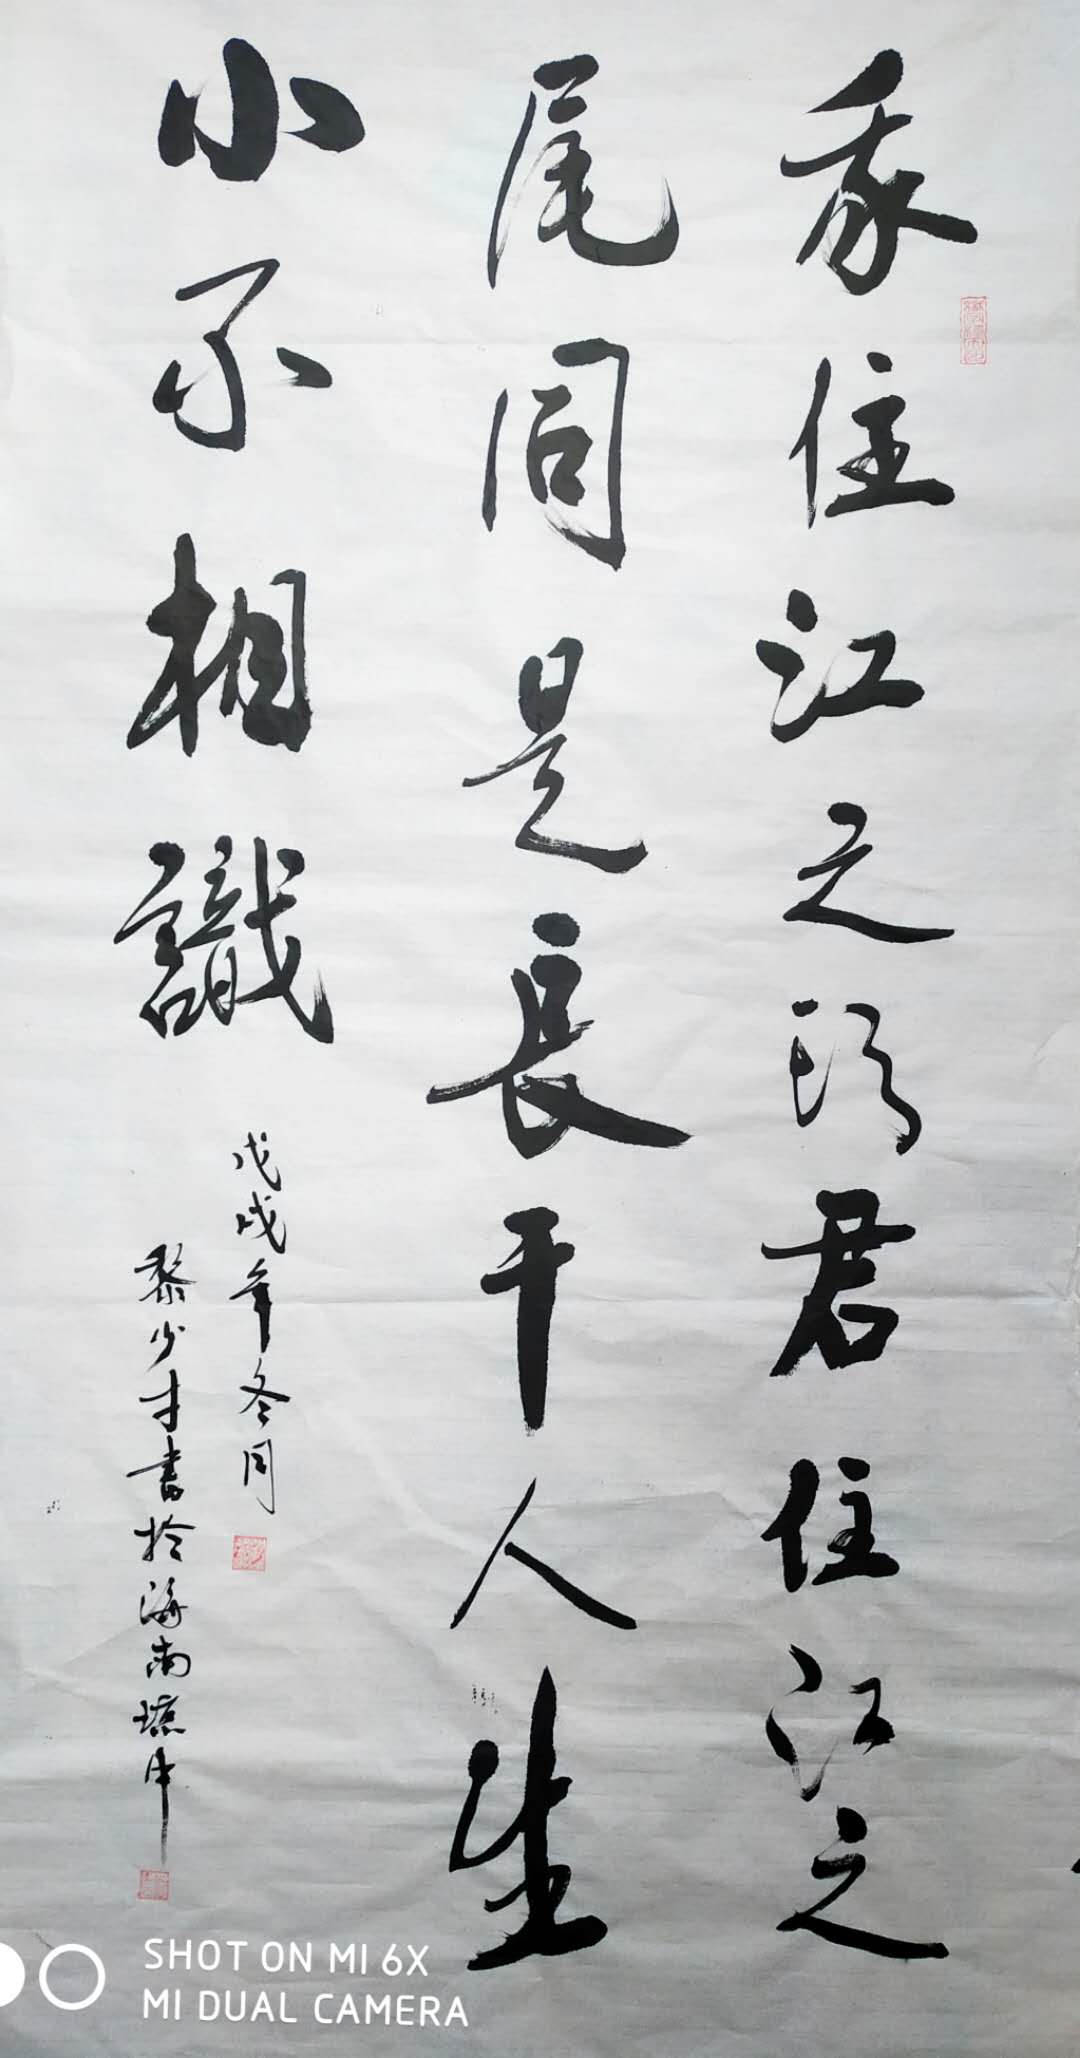 我住江之头君住江之
尾同是長干人生
小不相識
戊戌年冬月
黎少才書於海南琼中
SHOT ON MI 6X
MI DUAL CAMERA